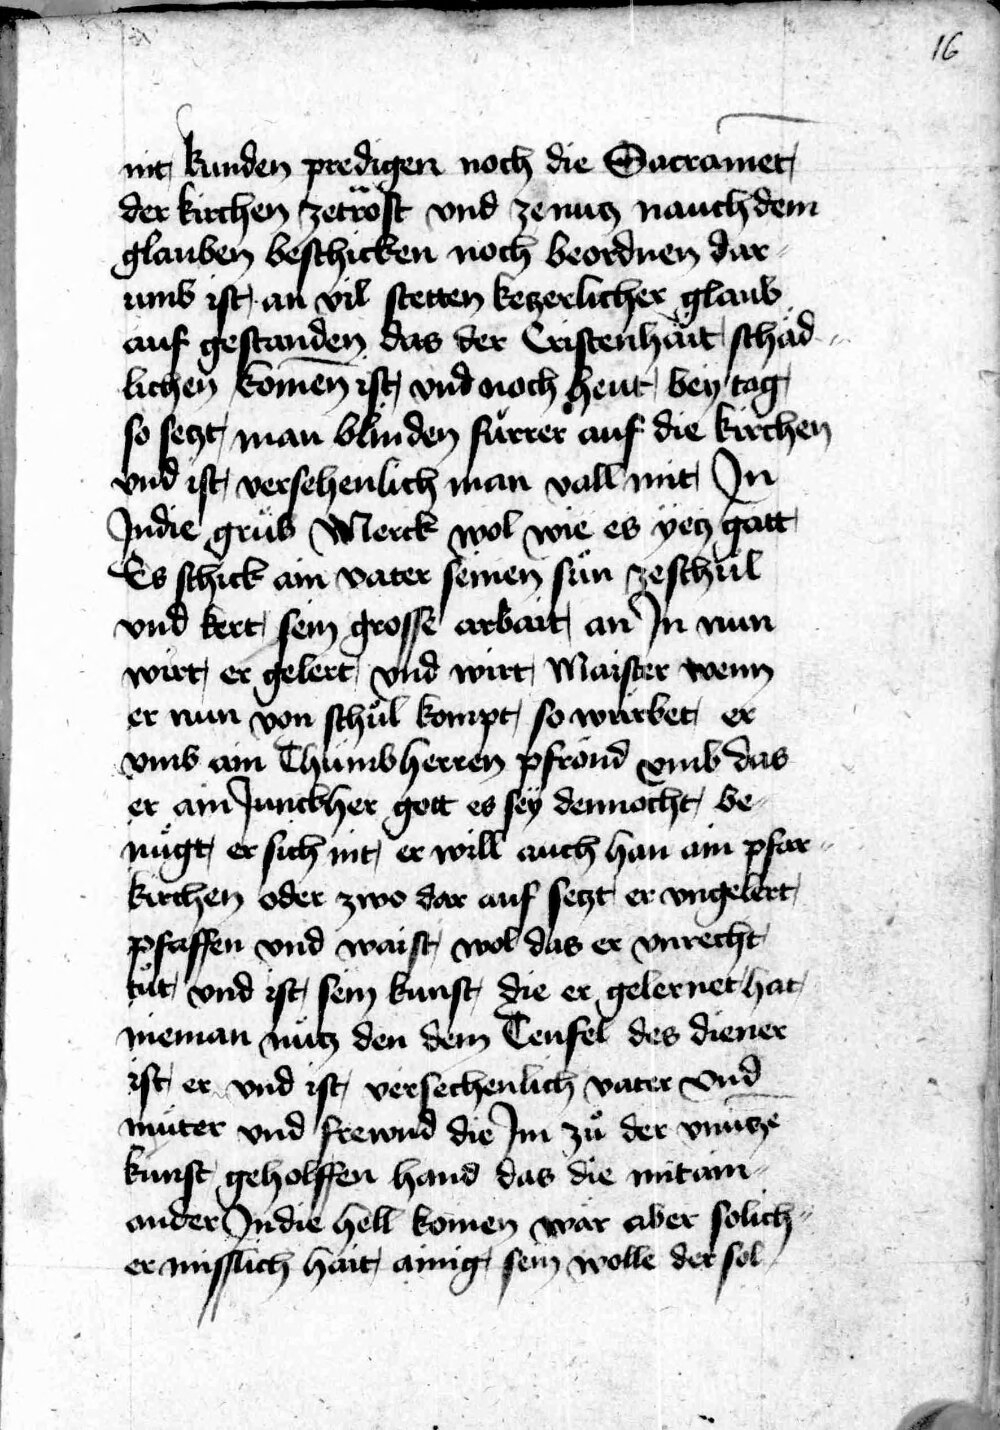 16
nit kunden predigen noch die Sacramēt
der kirchen zetröst vnd ze nutz nauch dem
glauben beschicken noch beordnen dar-
umb ist an vil stetten ketzerlicher glaub
auf gestanden das der Cristenhäit schäd-
lichen komēn ist vnd noch heut bey tag
so setzt man blinden fürrer auf die kirchen
vnd ist versehenlich man vall mit In
Indie grůb Merck wol wie es yetz gatt
Es schick ain vater seinen sůn zeschůl
vnd kert sein grosse arbait an In nun
wirt er gelert vnd wirt Maister wenn
er nun von schůl kompt so wirbet er
vmb ain Thumbherren pfrönd vmb das
er ain Junckher gott es sey dennocht be-
nügt er sich nit er will auch han ain pfar-
kirchen oder zwo dar auf setzt er vngelert
pfaffen vnd waist wol das er vnrecht
tůt vnd ist sein kunst die er gelernet hat
nieman nütz den dem Teufel des diener
ist er vnd ist versechenlich vater vnd
můter vnd frewnd die Im zů der vnützē
kunst geholffen hand das die mit ain-
ander Indie hell komen wär aber solich-
er misslich hait ainig sein wolle der sol